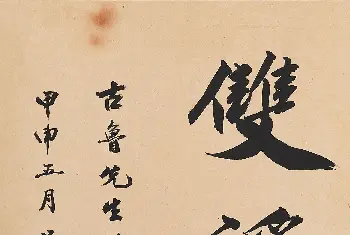 雙
古魯先生
甲申五月